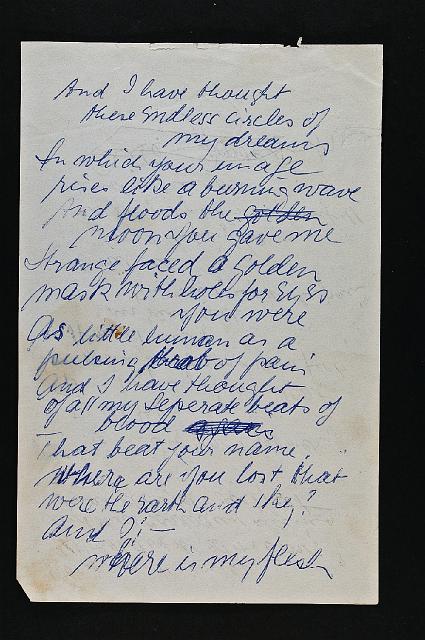 And I have thought
these endless circles of
my dreams
In which your image
rises like a burning wave
And floods the golden
moon you gave me
Strange faced a golden
mask with holes for eyes
you were
As little human as a
pulsing throb of pain
And I have thought
of all my seperate beats of
blood
That beat your name.
Where are you lost that
were the earth and sky?
And I? —
where is my flesh